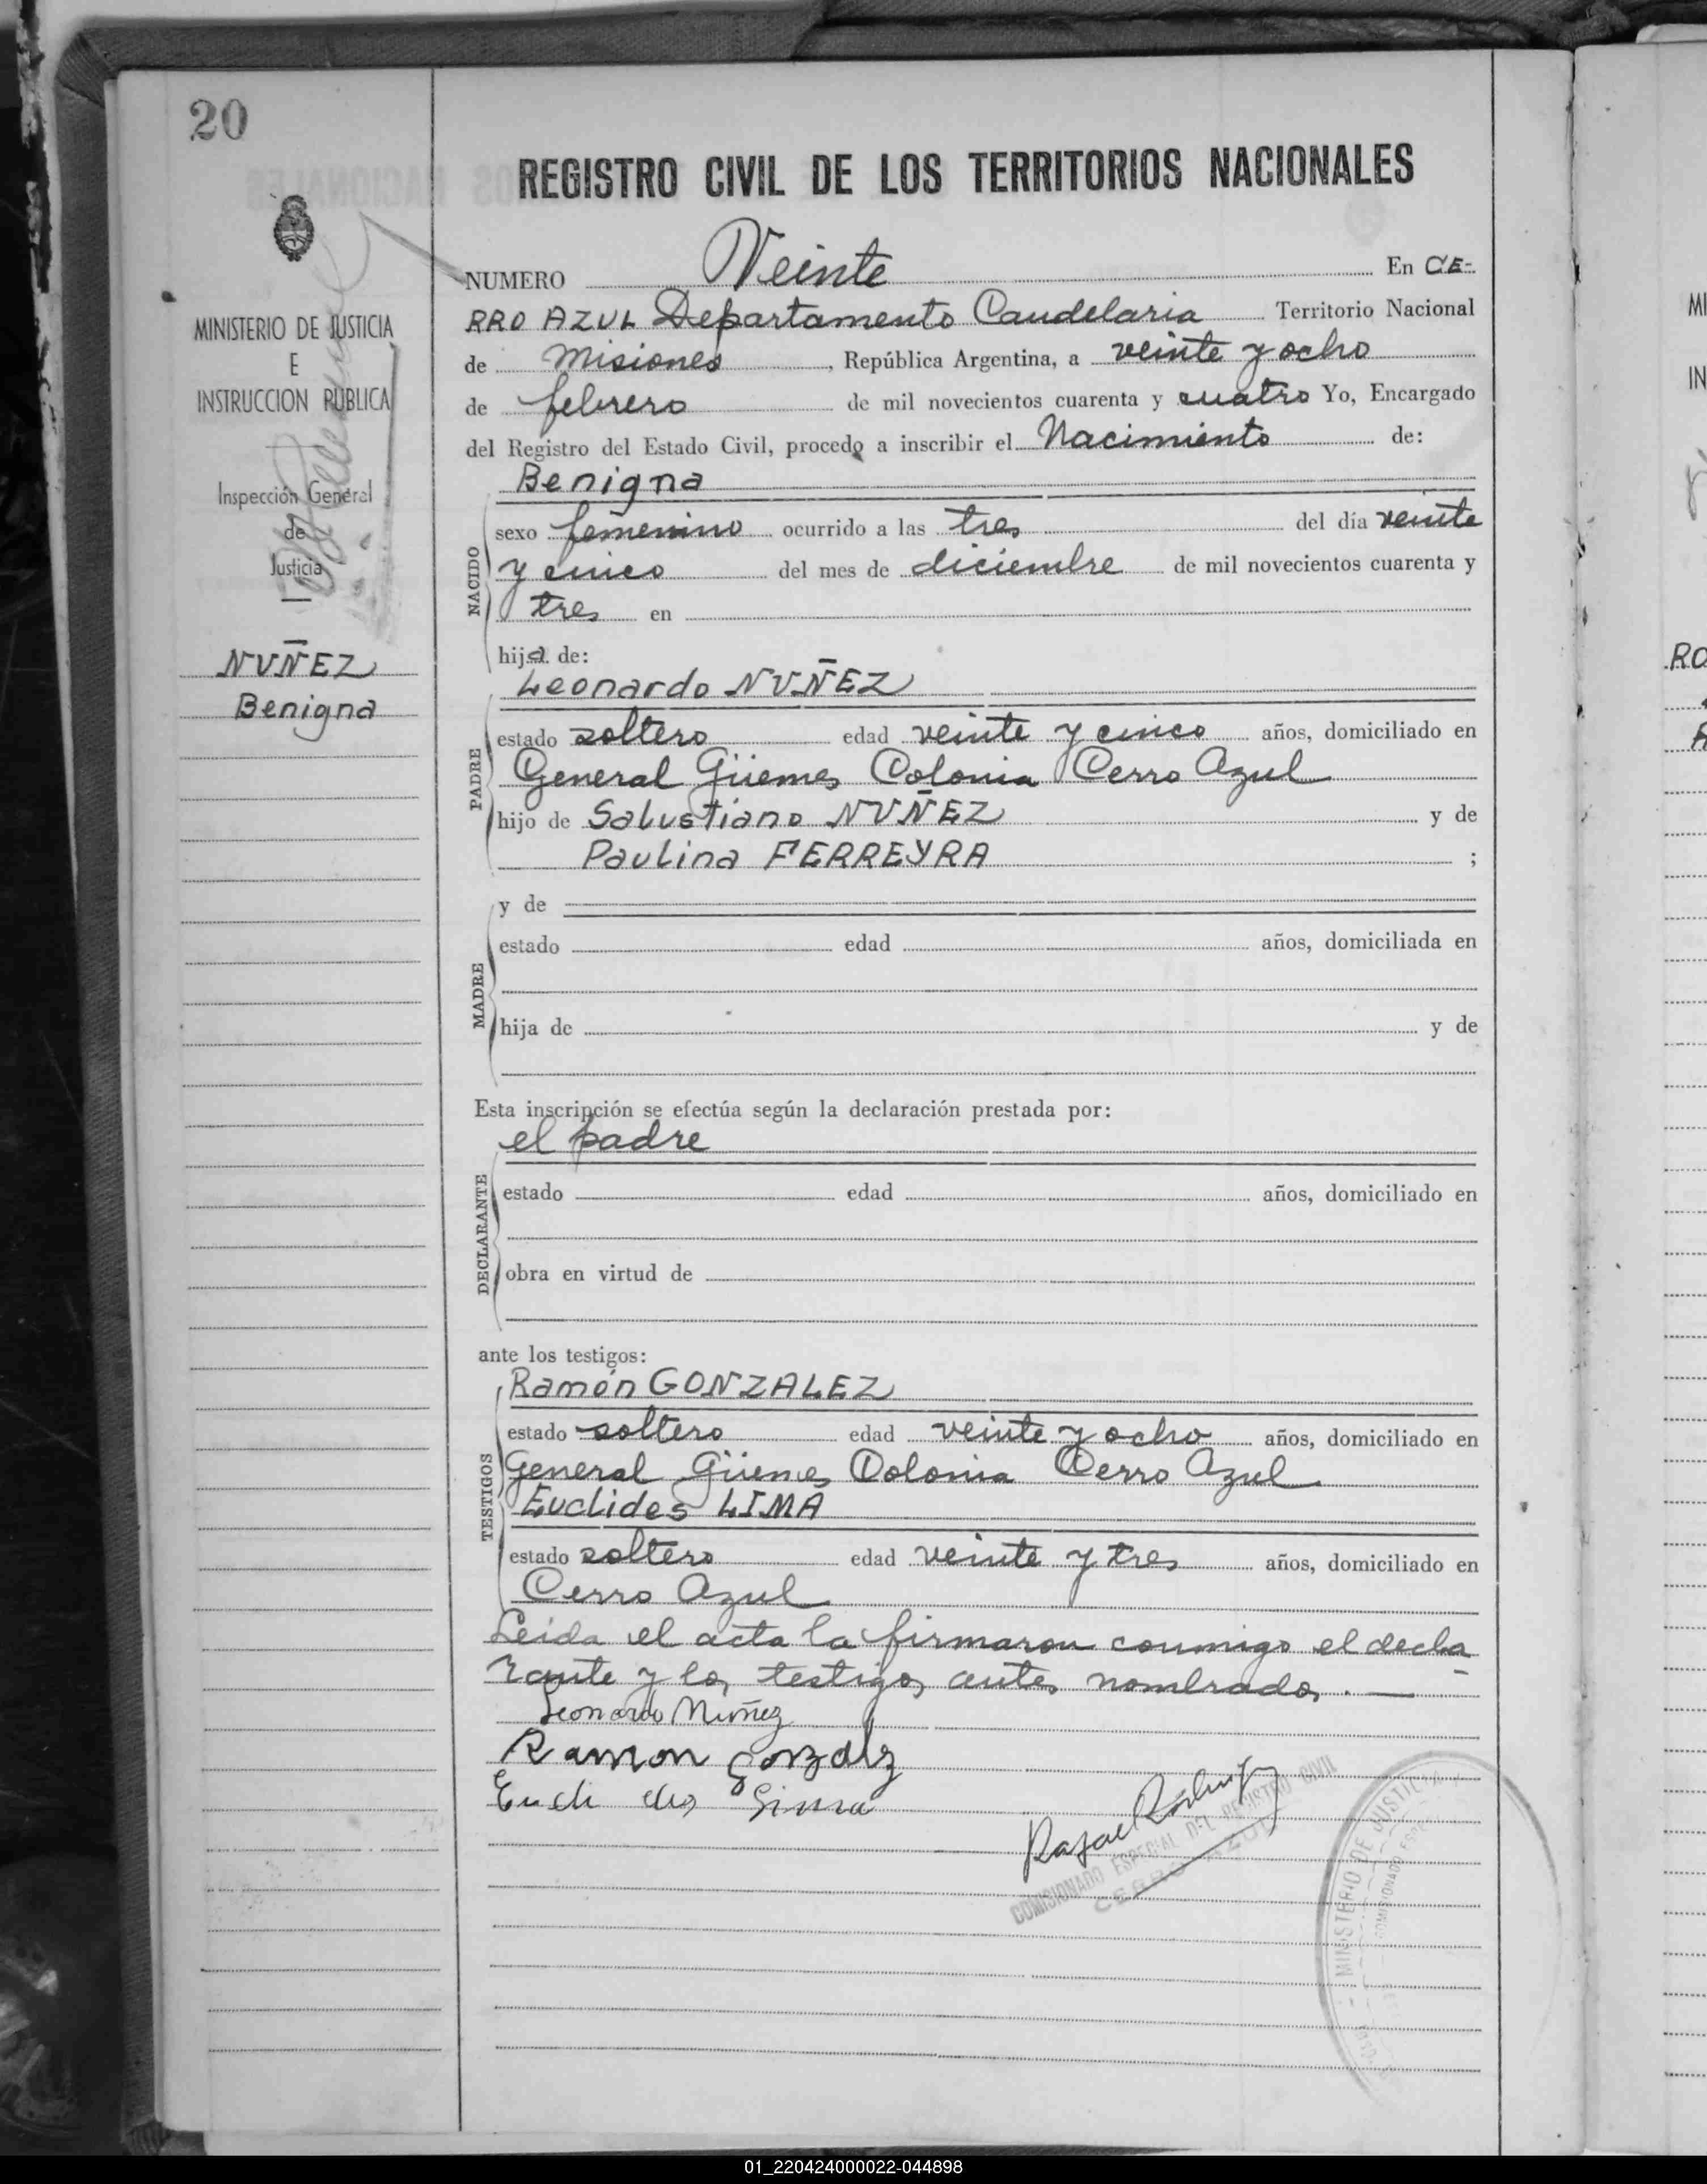 20
REGISTRO CIVIL DE LOS TERRITORIOS NACIONALES
MINISTERIO DE JUSTICIA
E
INSTRUCCION PUBLICA
Inspección General
de
Justicia
NUÑEZ
Benigna
NUMERO Veinte En CE-
RRO AZUL Departamento Candelaria Territorio Nacional
de Misiones, República Argentina, a veinte y ocho
de febrero de mil novecientos cuarenta y cuatro Yo, Encargado
del Registro del Estado Civil, procedo a inscribir el Nacimiento de:
Benigna
NACIDO
sexo femenino ocurrido a las tres del día veinte
y cinco del mes de diciembre de mil novecientos cuarenta y
tres en
hija de:
Leonardo NUÑEZ
PADRE
estado soltero edad veinte y cinco años, domiciliado en
General Güemes Colonia Cerro Azul
hijo de Salustiano NUÑEZ y de
Paulina FERREYRA ;
MADRE
y de
estado edad años, domiciliada en
hija de y de
Esta inscripción se efectúa según la declaración prestada por:
el padre
DECLARANTE
estado edad años, domiciliado en
obra en virtud de
ante los testigos:
Ramón GONZALEZ
TESTIGOS
estado soltero edad veinte y ocho años, domiciliado en
General Güemes Colonia Cerro Azul
Euclides LIMA
estado soltero edad veinte y tres años, domiciliado en
Cerro Azul
Leida el acta la firmaron conmigo el decla
rante y los testigos antes nombrados. —
Leonardo Nuñez
Ramon Gonzalez
Euclides Lima
Rafael
COMISIONADO ESPECIAL DEL REGISTRO CIVIL
CERRO AZUL
MINISTERIO DE JUSTICIA
COMISIONADO ESPE
01_220424000022-044898